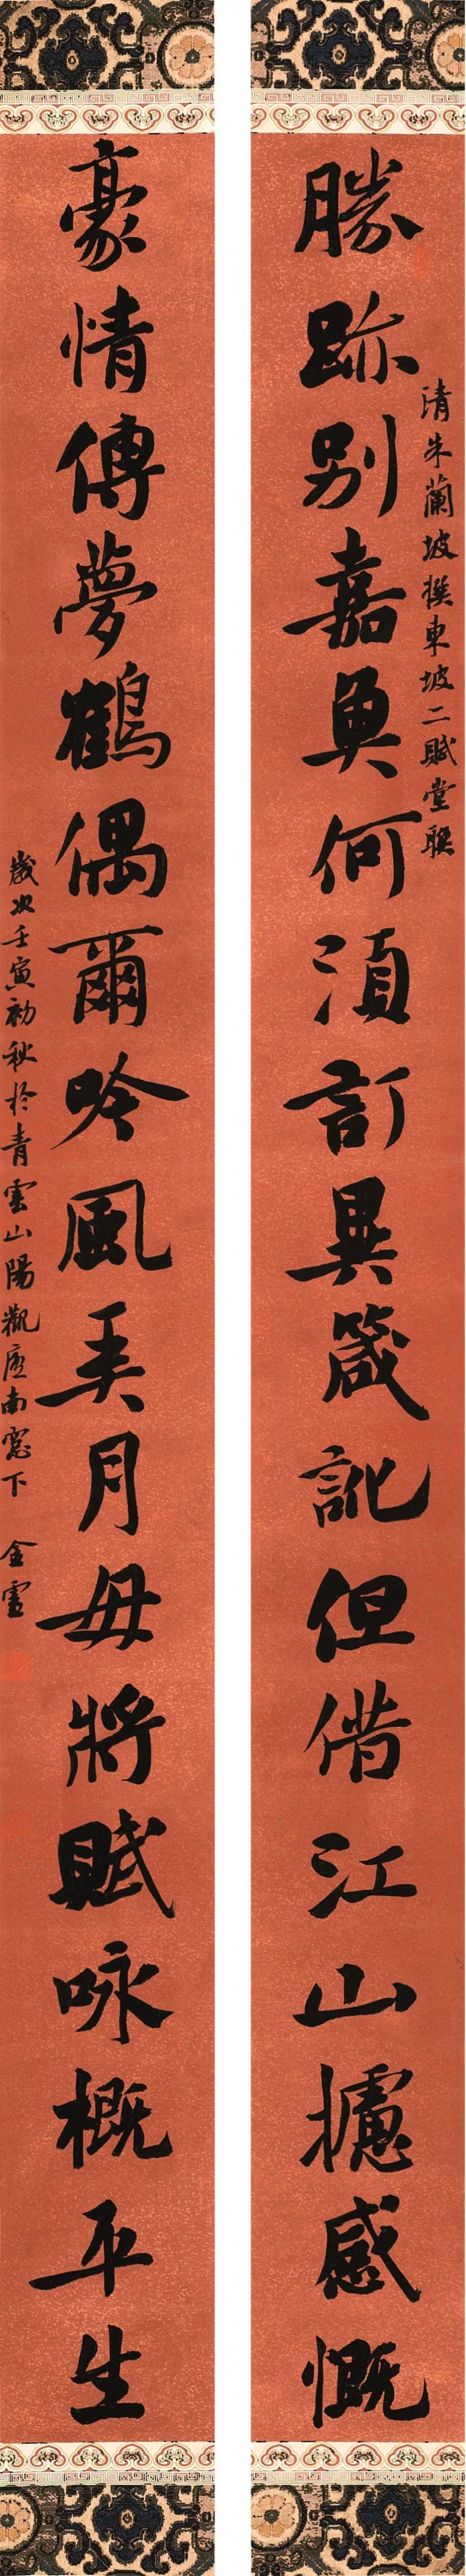 勝跡別嘉魚何須訂異箴訛但借江山攄感慨
清朱蘭坡撰東坡二賦堂聯
豪情傳夢鶴偶爾吟風弄月毋將賦咏概平生
歲次壬寅初秋於青雲山陽觀虛南窗下 金靈